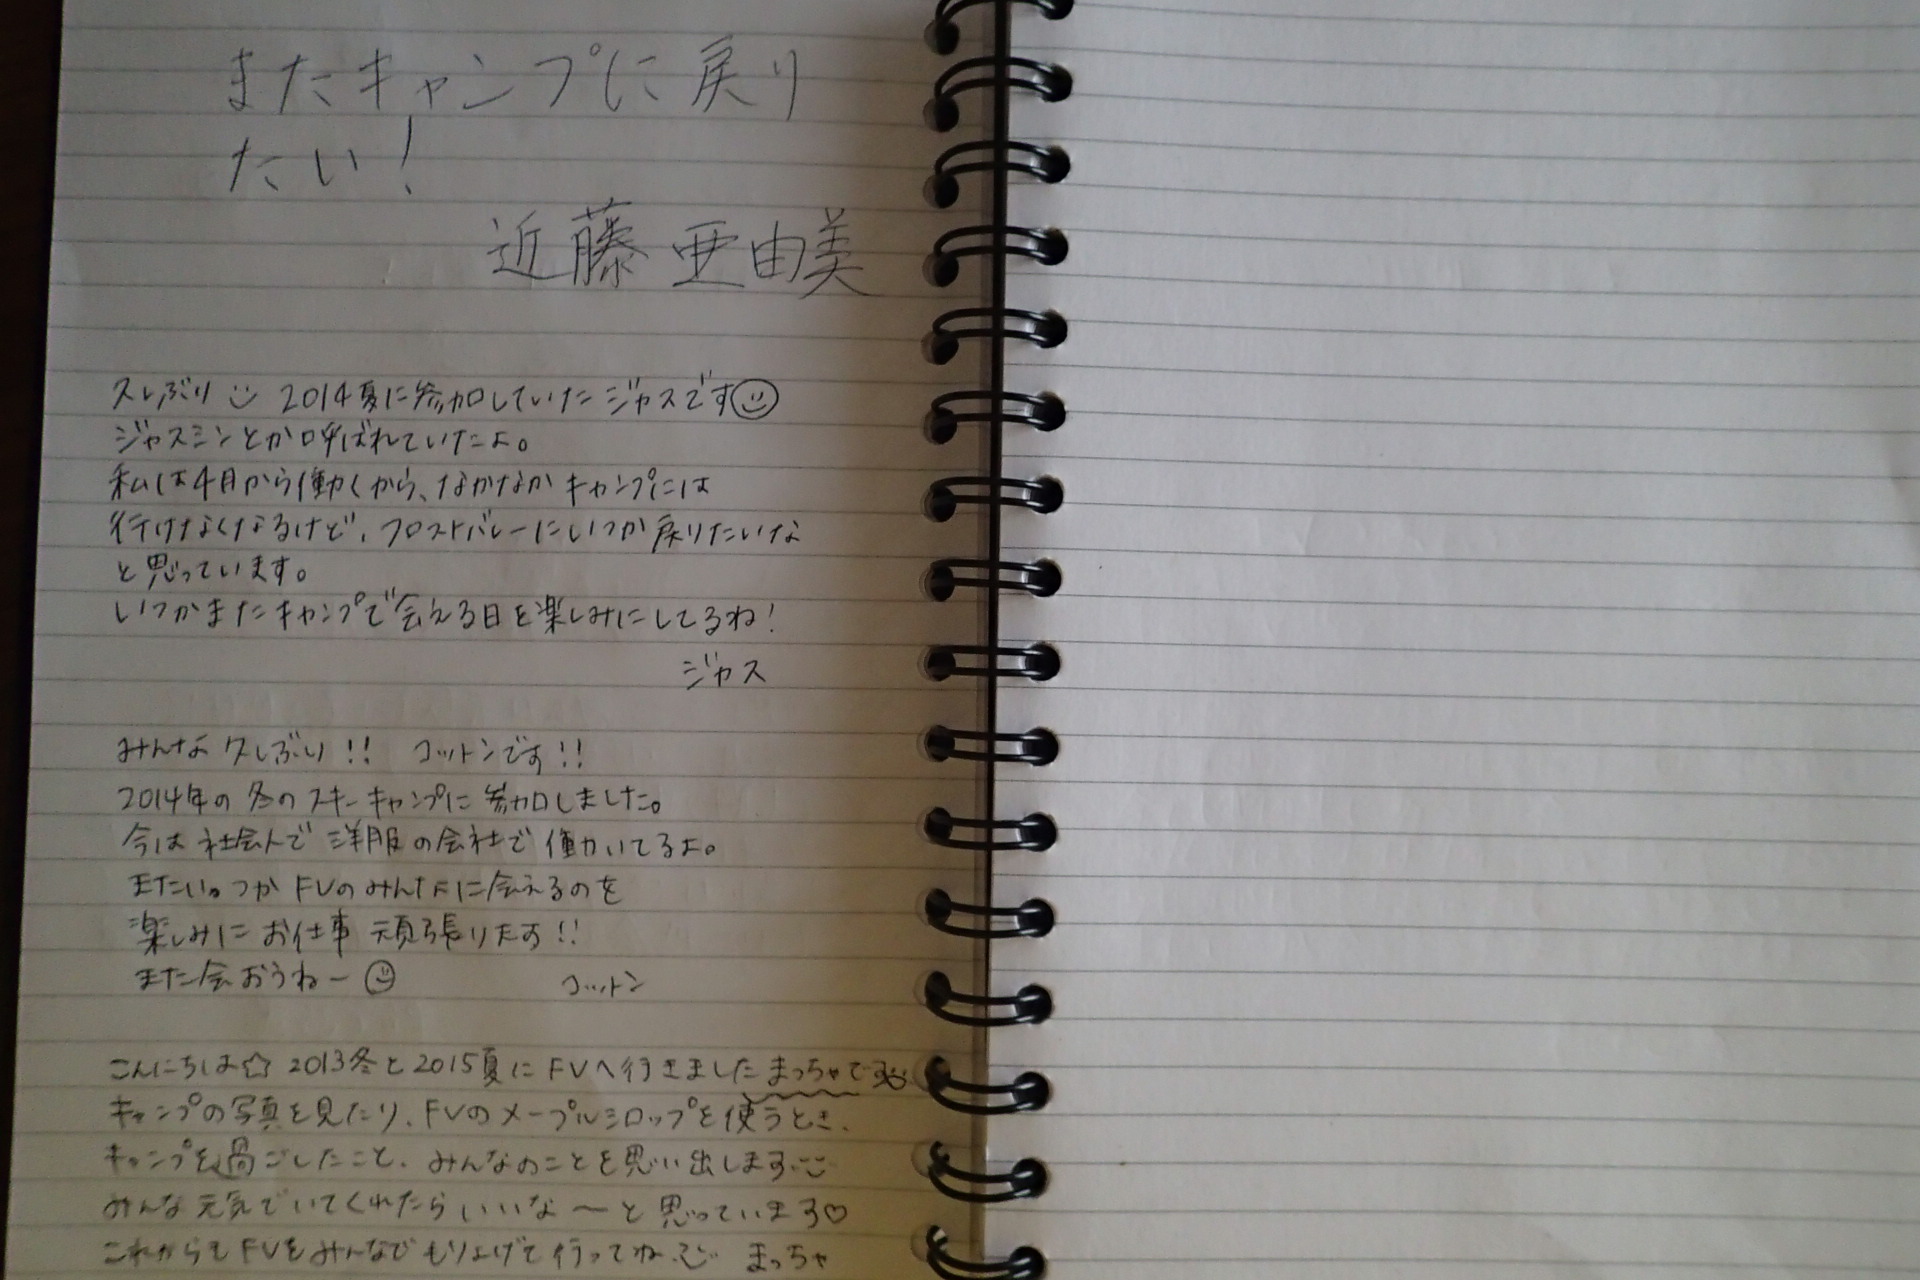 またキャンプに戻り
たい!
近藤亜由美
久しぶり 2014夏に参加していたジャスです
ジャスミンとか呼ばれていたよ。
私は4月から働くから、なかなかキャンプには
行けなくなるけど、フロストバレーにいつか戻りたいな
と思っています。
いつかまたキャンプで会える日を楽しみにしてるね!
ジャス
みんな久しぶり!! コットンです!!
2014年の冬のスキーキャンプに参加しました。
今は社会人で洋服の会社で働いてるよ。
またいつか FVのみんなに会えるのを
楽しみにお仕事頑張ります!!
また会おうねー
コットン
こんにちは☆ 2013冬と2015夏にFVへ行きましたまっちゃです
キャンプの写真を見たり、FVのメープルシロップを使うとき、
キャンプを過ごしたこと、みんなのことを思い出します
みんな元気でいてくれたらいいな〜と思っています♡
これからもFVをみんなでもり上げて行ってね まっちゃ